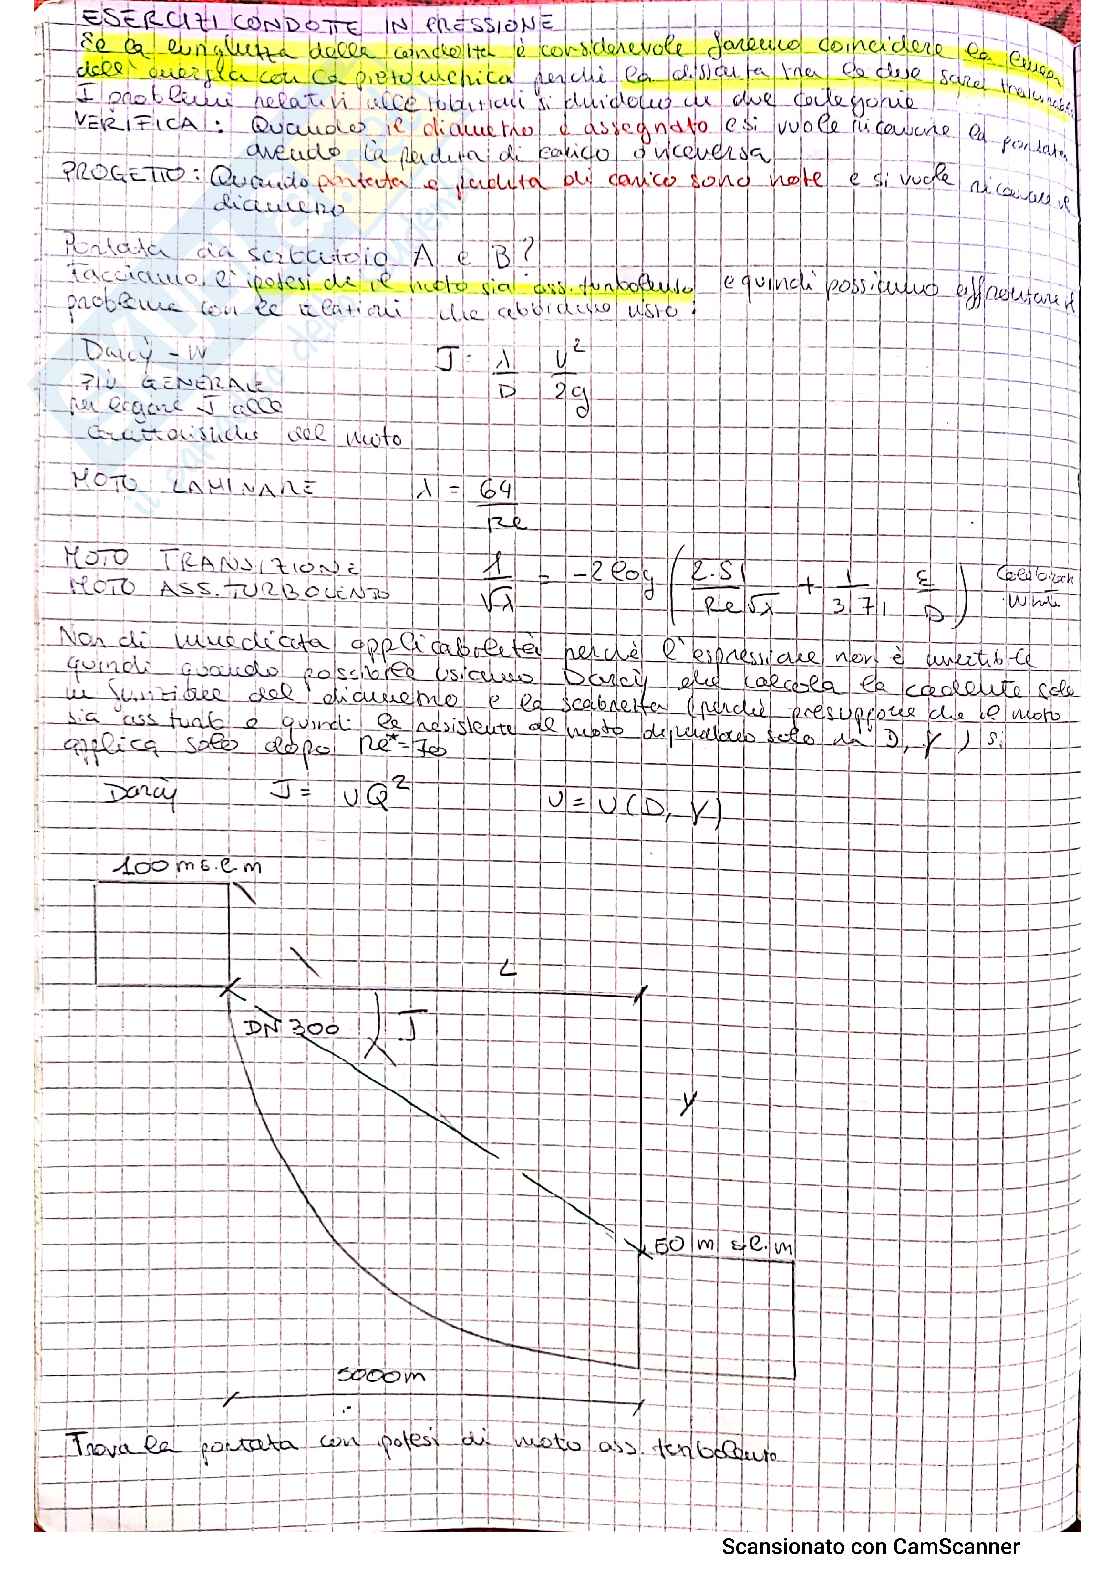 ESERCIZI CONDOTTE IN PRESSIONE
Se la lunghezza della condotta è considerevole faremo coincidere la linea
dell' energia con la piezometrica perché la distanza tra le due sarà
I problemi relativi alle tubazioni si dividono in due categorie
VERIFICA: Quando il diametro è assegnato e si vuole ricavare la portata
avendo la perdita di carico o viceversa
PROGETTO: Quando portata e perdita di carico sono note e si vuole ricavare il
diametro
Portata da serbatoio A e B?
Facciamo l'ipotesi che il moto sia ass. turbolento e quindi possiamo affrontare il
problema con le relazioni che abbiamo visto.
Darcy - W
J = λ/D V²/2g
PIÙ GENERALE
per legare J alle
caratteristiche del moto
MOTO LAMINARE λ = 64/Re
MOTO TRANSIZIONE
MOTO ASS. TURBOLENTO
1/√λ = -2log ( 2.51/Re√λ + 1/3,71 ε/D )
White
Non di immediata applicabilità perché l'espressione non è invertibile
quindi quando possibile usiamo Darcy che calcola la cadente solo
in funzione del diametro e la scabrezza (perché presuppone che il moto
sia ass turb e quindi le resistenze al moto dipendono solo da D, γ) si
applica solo dopo Re*=70
Darcy J = υQ² υ = υ(D, γ)
100 m s.l.m
L
DN 300 J
Y
50 m s.l.m
5000m
Trova la portata con ipotesi di moto ass. turbolento
Scansionato con CamScanner